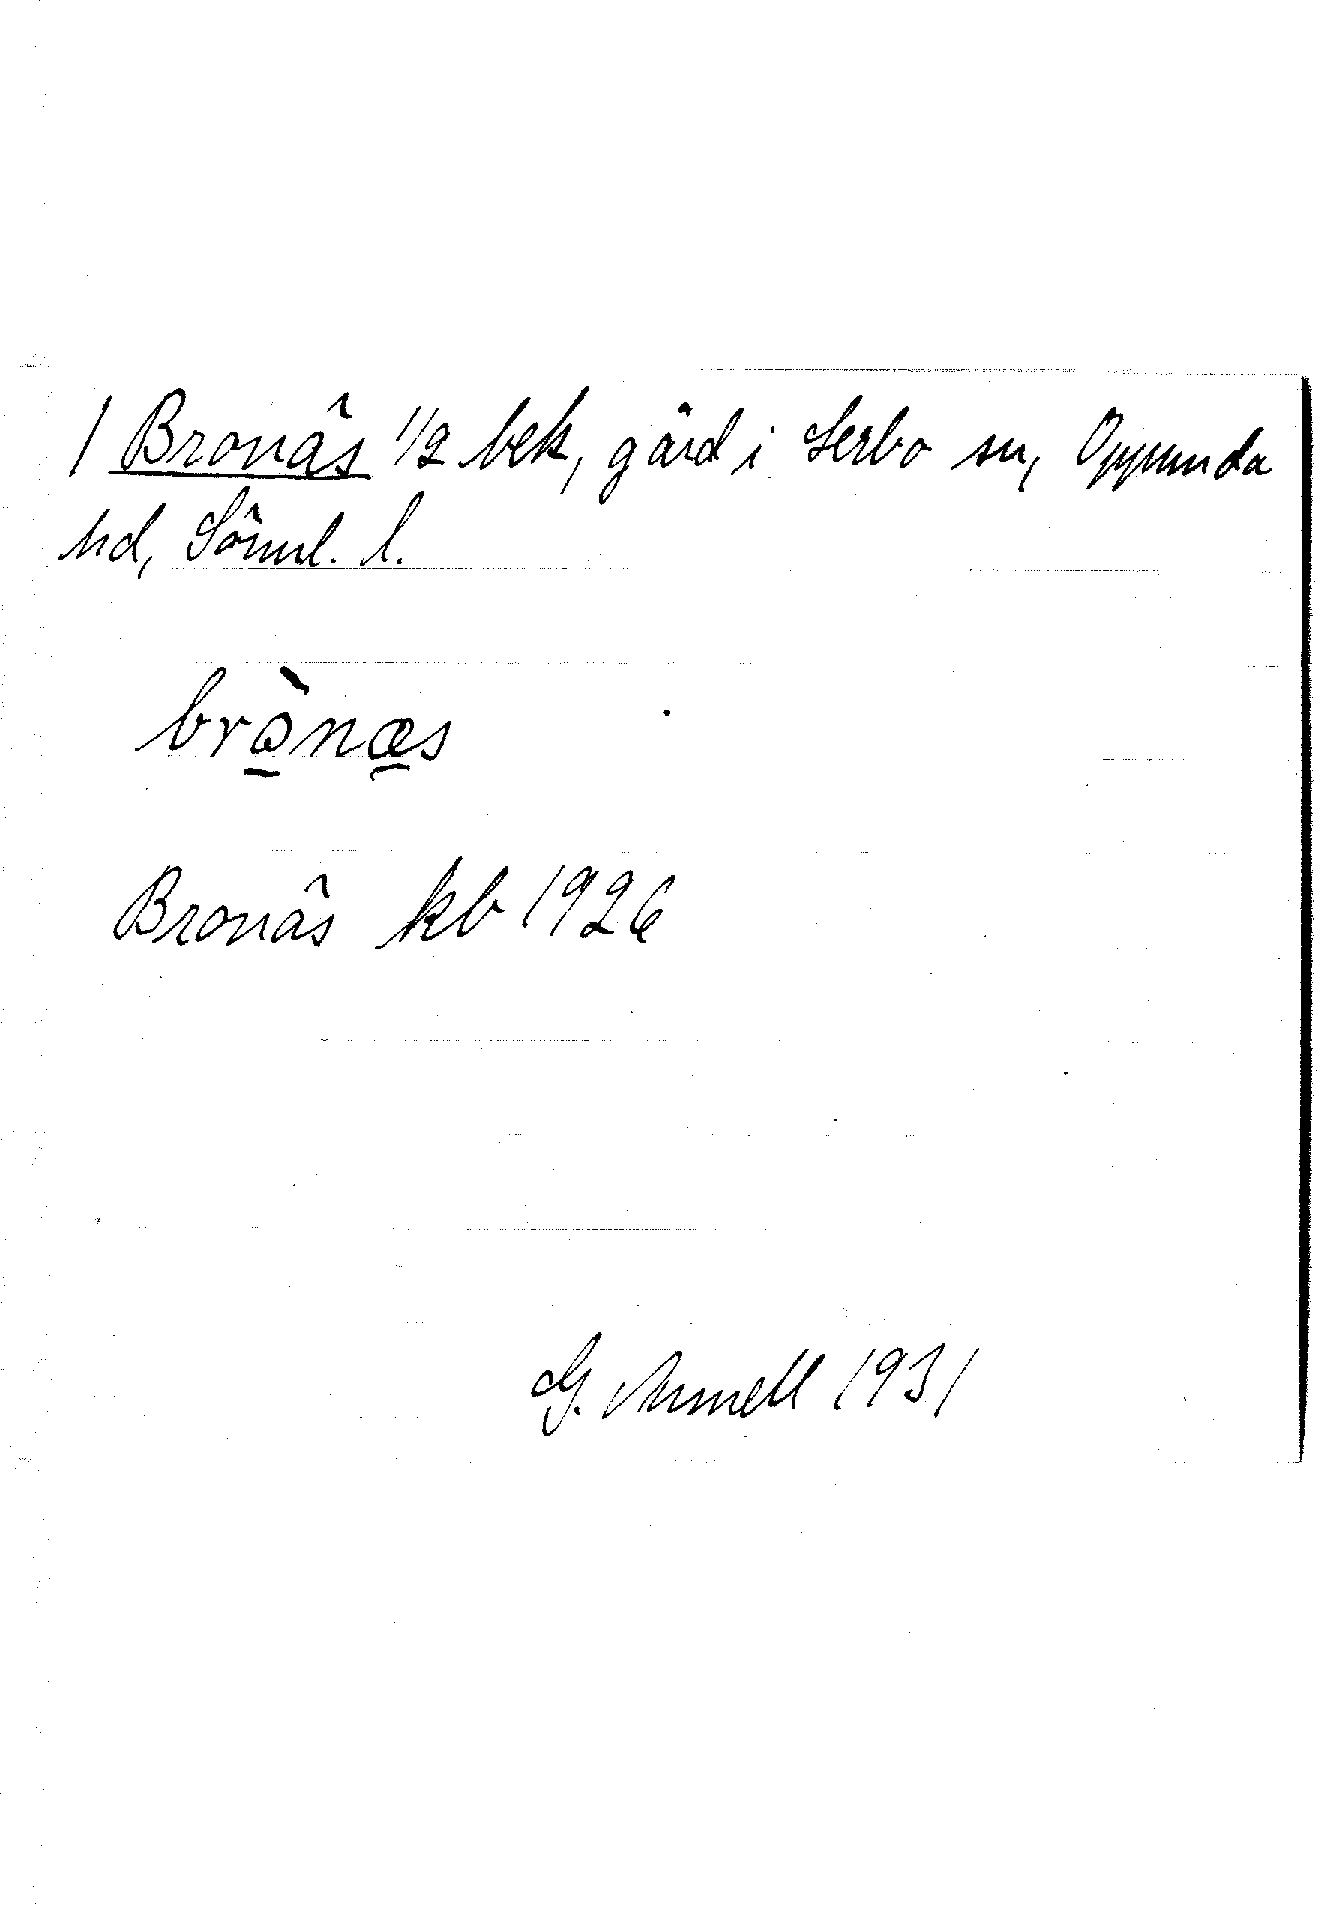 1 Bronäs 1/2 bek, gård i Lerbo sn, Oppunda
hd, Söml. l.
brònæs
Bronäs kb 1926
G. Armell 1931